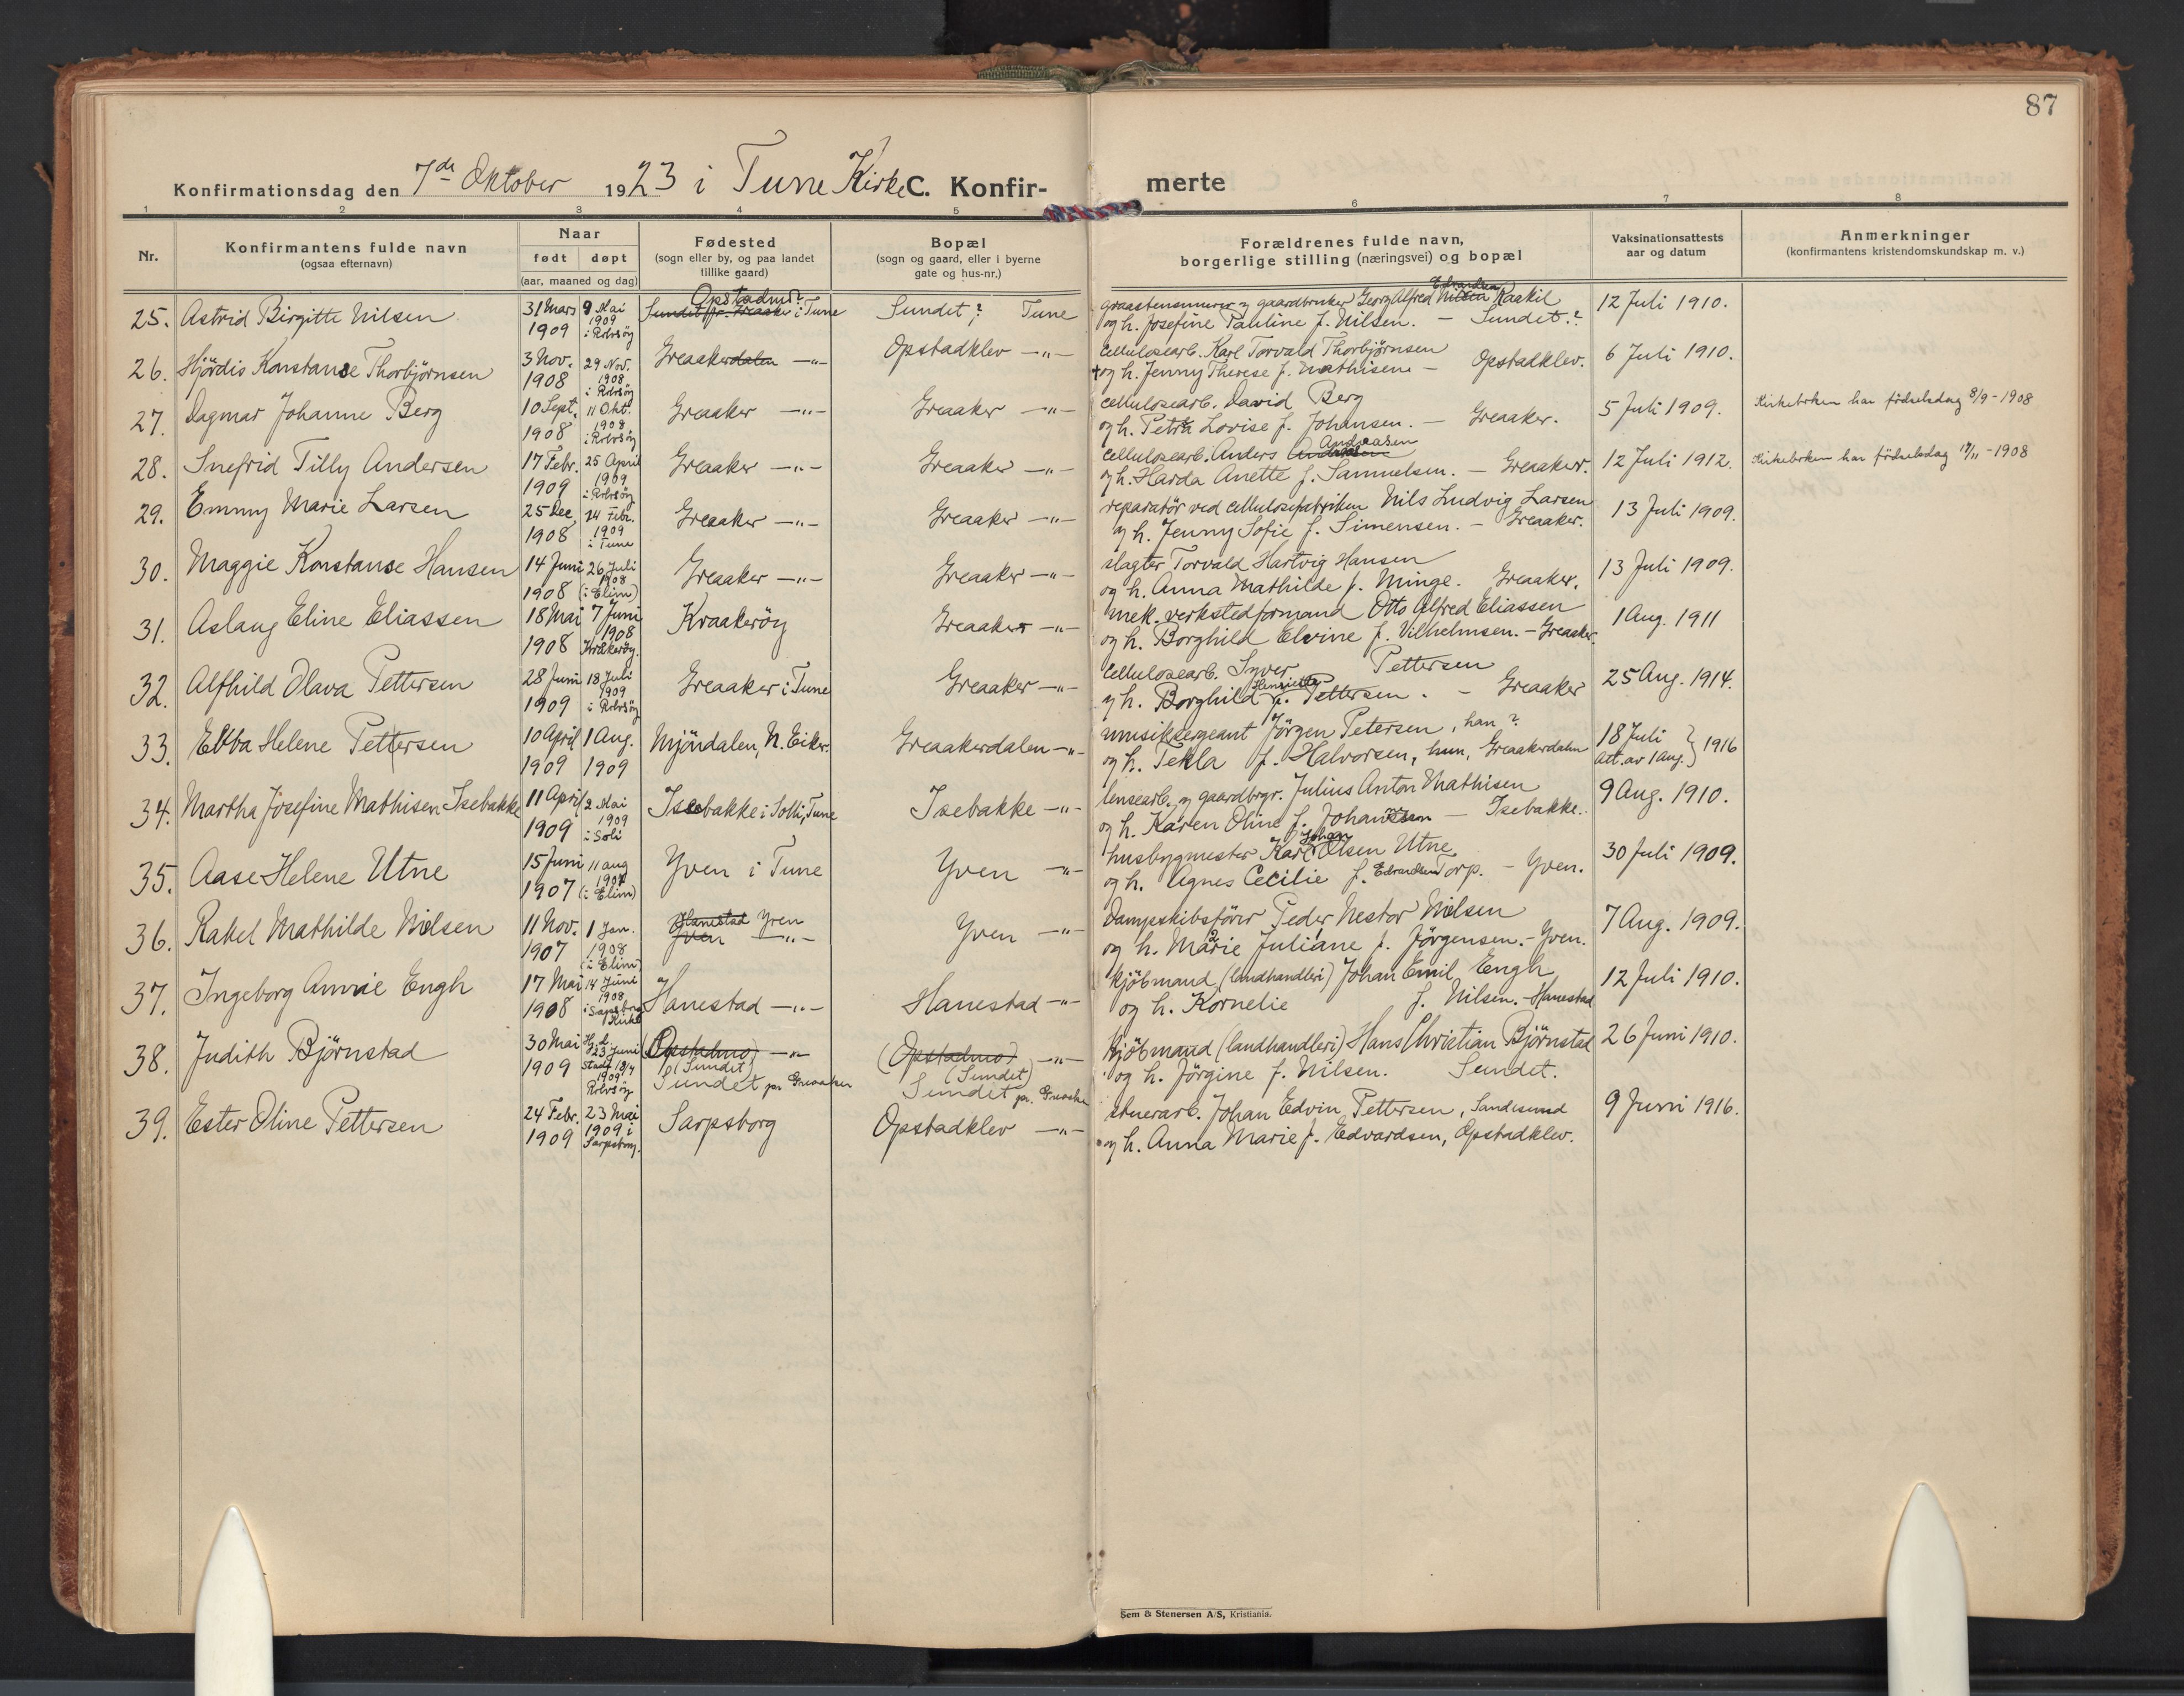 87
Konfirmationsdag den 7de Oktober 1923 i Tune Kirke C. Konfir-merte
1 2 3 4 5 6 7 8
Nr.
Konfirmantens fulde navn
(ogsaa efternavn)
Naar
født døpt
(aar, maaned og dag)
Fødested
(sogn eller by, og paa landet
tillike gaard)
Bopæl
(sogn og gaard, eller i byerne
gate og hus-nr.)
Forældrenes fulde navn,
borgerlige stilling (næringsvei) og bopæl
Vaksinationsattests
aar og datum
Anmerkninger
(konfirmantens kristendomskundskap m. v.)
25. Astrid Birgitte Nilsen 31 Mars 1909 9 Mai 1909 i Rolvsöy Opstadmo? Sundet pr. Greaaker i Tune Sundet? Tune
gaardbruker Georg Alfred Nilsen Edvardsen Kaakil
og h. Josefine Pauline f. Nilsen. — Sundet.? 12 Juli 1910.
26. Hjördis Konstanse Thorbjörnsen 3 Nov. 1908 29 Nov. 1908 i Rolvsöy Greaakerdalen —"— Opstadklev —"—
cellulosearb. Karl Torvald Thorbjørnsen
+og h. Jenny Therese f. Mathisen — Opstadklev. 6 Juli 1910.
27. Dagmar Johanne Berg 10 Sept. 1908 11 Okt. 1908 i Rolvsöy Greaaker —"— Greaaker —"—
cellulosearb. David Berg
og h. Petra Lovise f. Johansen. — Greaaker. 5 Juli 1909. Kirkeboken har födselsdag 8/9 - 1908
28. Snefrid Tilly Andersen 17 Febr. 1909 25 April 1909 i Rolvsöy Greaaker —"— Greaaker —"—
cellulosearb. Anders Andreasen
og h. Harda Anette f. Samuelsen. — Greaaker. 12 Juli 1912. Kirkeboken har födselsdag 17/11 - 1908
29. Emmy Marie Larsen 25 Dec 1908 14 Febr. 1909 i Tune Greaaker —"— Greaaker —"—
reparatör ved cellulosefabriken Nils Ludvig Larsen
og h. Jenny Sofie f. Simensen. — Greaaker. 13 Juli 1909.
30. Maggie Konstanse Hansen 14 Juni 1908 26 Juli 1908 (i Elim) Greaaker —"— Greaaker —"—
slagter Torvald Hartvig Hansen
og h. Anna Mathilde f. Minge. Greaaker. 13 Juli 1909.
31. Aslaug Eline Eliassen 18 Mai 1908 7 Juni 1908 Kråkeröy. Kraakeröy Greaaker —"—
mek. verkstedformand Otto Alfred Eliassen
og h. Borghild Elvine f. Vilhelmsen. — Greaaker. 1 Aug. 1911
32. Alfhild Olava Pettersen 28 Juni 1909 18 Juli 1909 i Rolvsöy Greaaker i Tune Greaaker —"—
cellulosearb. Syver Pettersen
og h. Borghild Henriette f. Pettersen. — Greaaker 25 Aug. 1914.
33. Ebba Helene Pettersen 10 April 1909 1 Aug. 1909 Mjöndalen, N. Eiker. Greaakerdalen —"—
musiksergeant Jörgen Petersen, han?
og h. Tekla f. Halvorsen, hun, Greaakerdalen 18 Juli att. av 1 Aug. } 1916
34. Martha Josefine Mathisen Isebakke 11 April 1909 2 Mai 1909 i Soli Isebakke i Solli, Tune Isebakke —"—
lensearb. og gaardbrgr. Julius Anton Mathisen
og h. Karen Oline f. Johansen — Isebakke. 9 Aug. 1910.
35. Aase Helene Utne 15 Juni 1907 11 aug 1907 (i Elim) Yven i Tune Yven —"—
husbygmester Karl Johan Olsen Utne
og h. Agnes Cecilie f. Edvardsen Torp. — Yven. 30 Juli 1909.
36. Rakel Mathilde Nilsen 11 Nov. 1907 1 Jan. 1908 (i Elim) Hanestad Yven Yven —"— Yven —"—
Dampskibsförer Peder Nestor Nilsen
og h. Marie Juliane f. Jörgensen. — Yven. 7 Aug. 1909.
37. Ingeborg Annie Engh 17 Mai 1908 14 Juni 1908 i Sarpsborg Kirke Hanestad —"— Hanestad —"—
Kjöbmand (landhandleri) Johan Emil Engh
og h. Kornelie f. Nilsen. — Hanestad 12 Juli 1910.
38. Judith Björnstad 30 Mai 1909 Hj.d. 23 Juni stadf. 18/7 1909 Rolvsöy (Opstadmo) —"— (Sundet) Sundet pr. Greaaker (Opstadmo) —"— (Sundet) Sundet pr. Greaaker
Kjöbmand (landhandleri) Hans Christian Björnstad
og h. Jörgine f. Nilsen. Sundet. 26 Juni 1910.
39. Ester Oline Pettersen 24 Febr. 1909 23 Mai 1909 i Sarpsborg. Sarpsborg Opstadklev —"—
Johan Edvin Pettersen, Sandesund
og h. Anna Marie f. Edvardsen, Opstadklev. 9 Juni 1916.
Sem & Stenersen A/S, Kristiania.